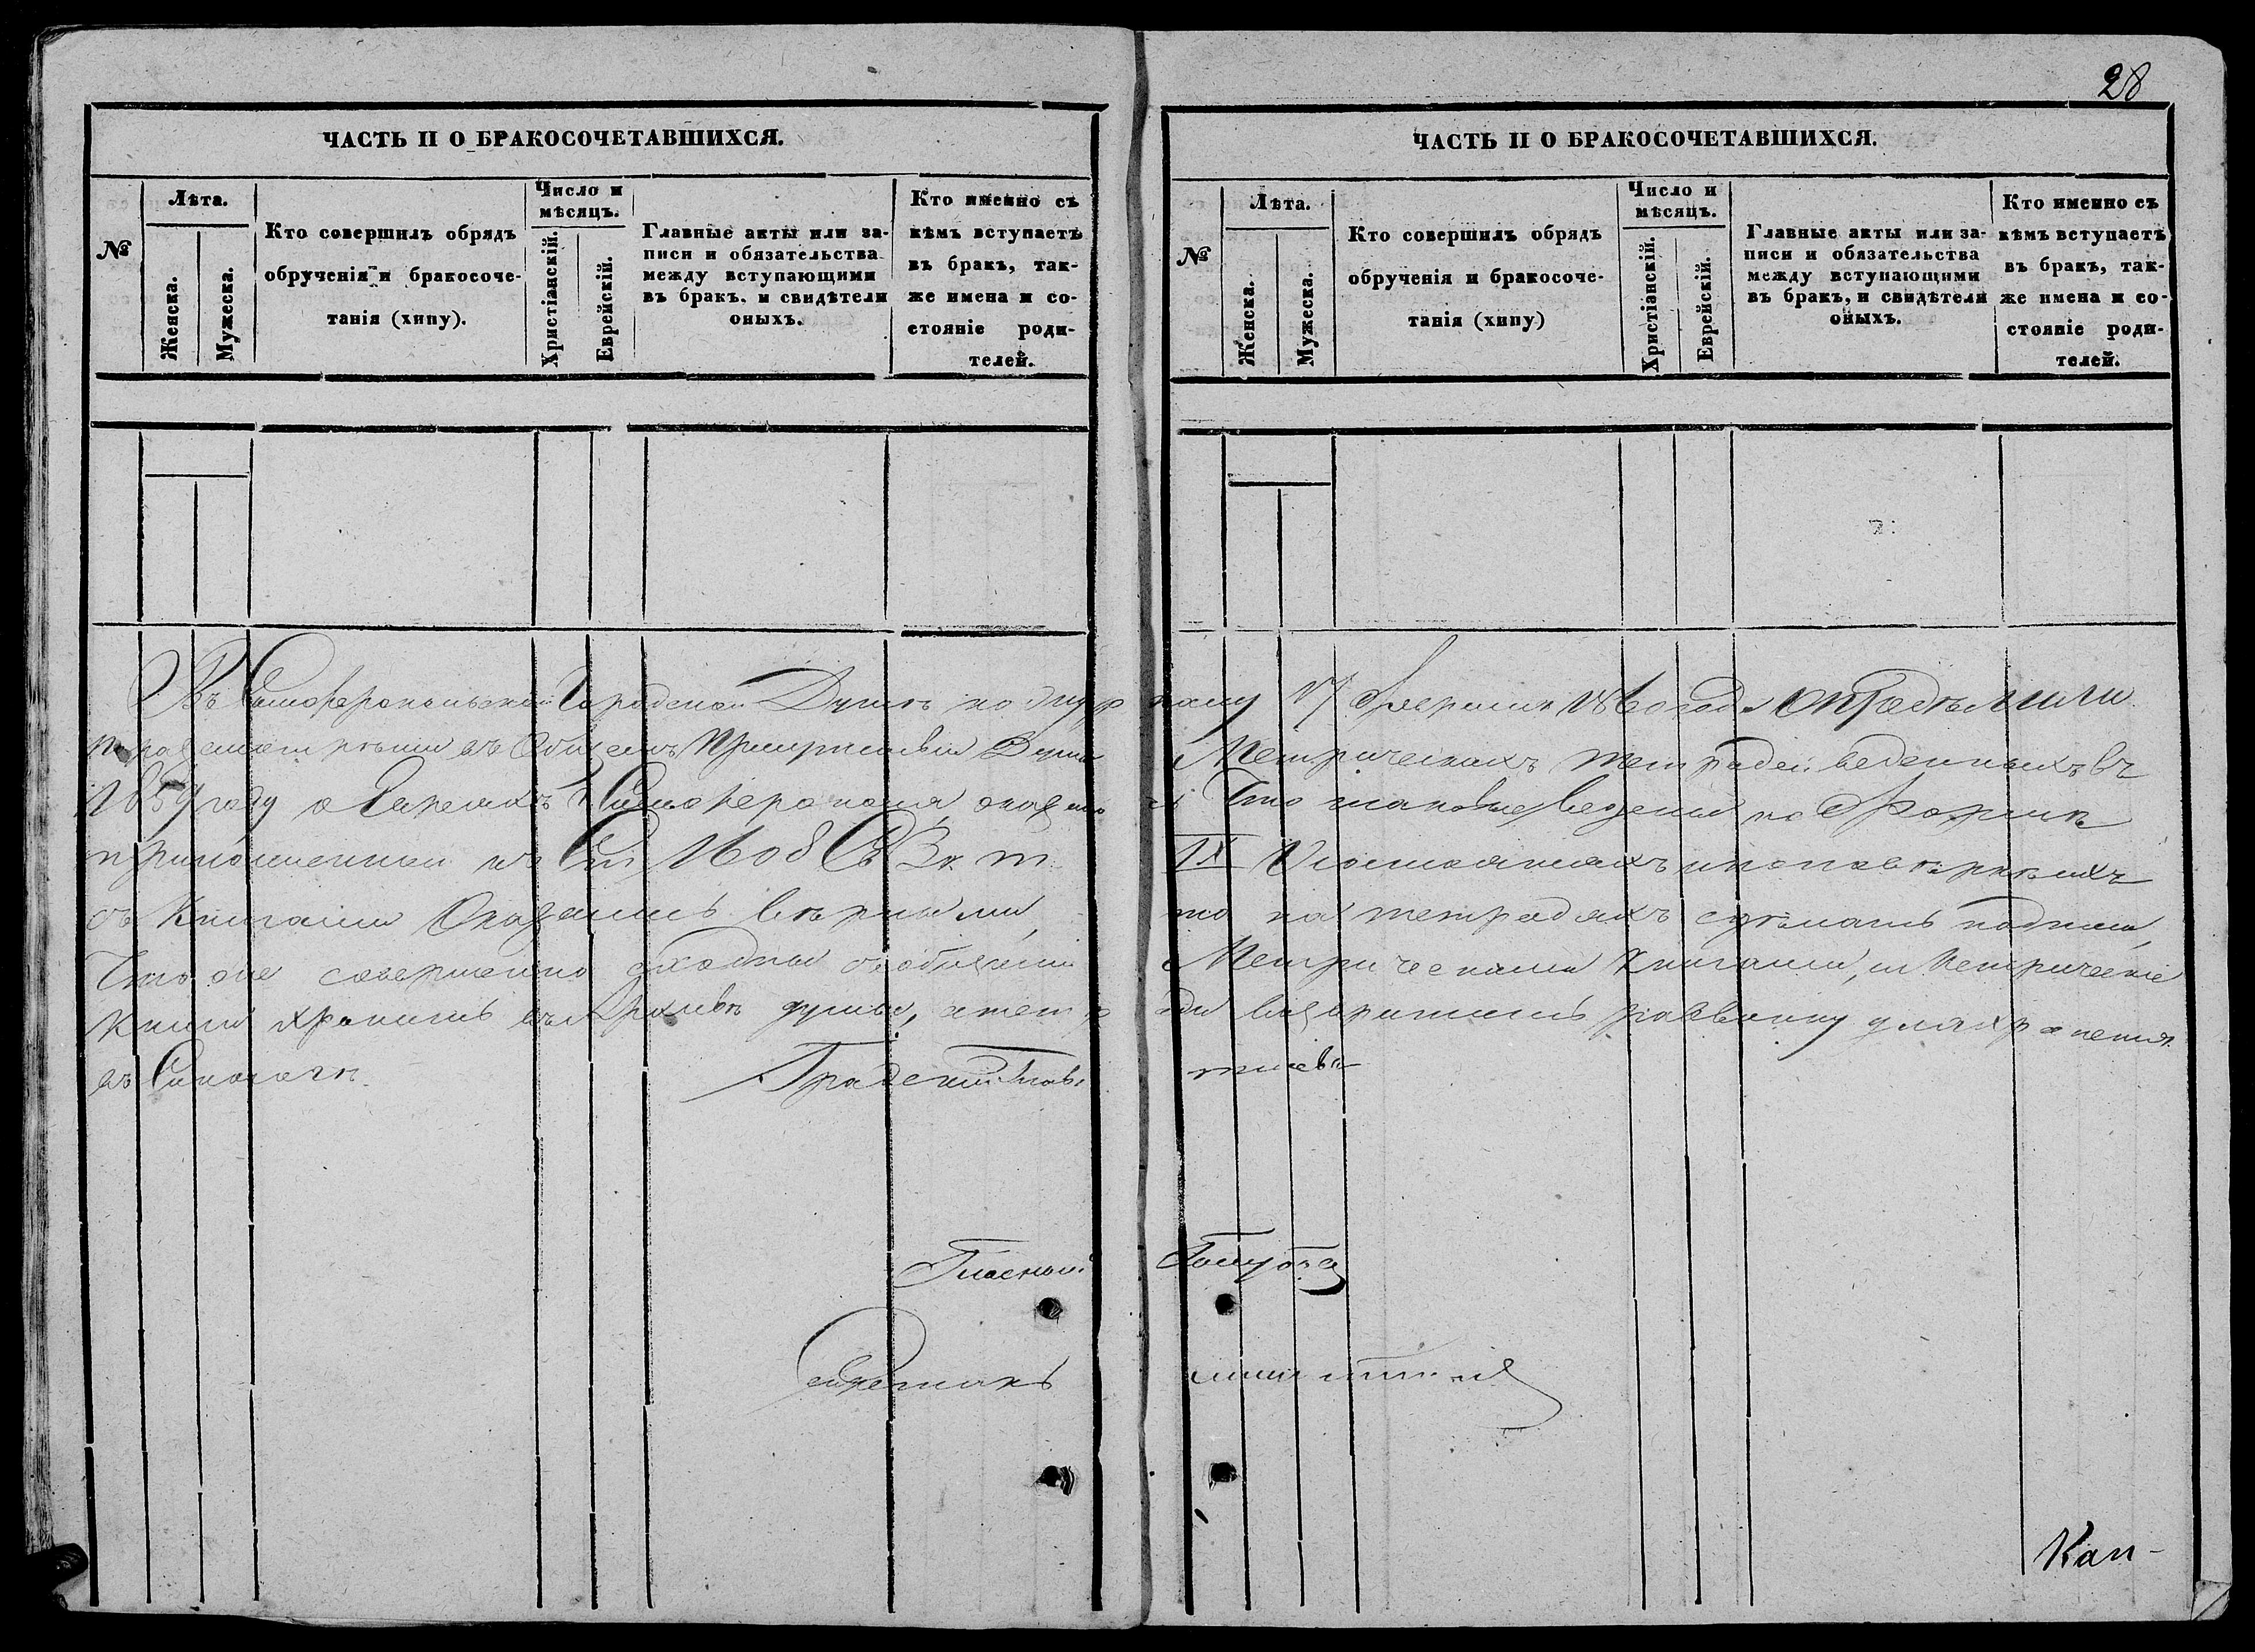 28
ЧАСТЬ II О БРАКОСОЧЕТАВШИХСЯ.
№
Лѣта.
Женска.
Мужеска.
Кто совершилъ обрядъ
обрученія и бракосоче-
танія (хипу).
Число и
мѣсяцъ.
Христіанскій.
Еврейскій.
Главные акты или за-
писи и обязательства
между вступающими
въ бракъ, и свидѣтели
оныхъ.
Кто именно съ
кѣмъ вступаетъ
въ бракъ, так-
же имена и со-
стояніе роди-
телей.
ЧАСТЬ II О БРАКОСОЧЕТАВШИХСЯ.
№
Лѣта.
Женска.
Мужеска.
Кто совершилъ обрядъ
обрученія и бракосоче-
танія (хипу)
Число и
мѣсяцъ.
Христіанскій.
Еврейскій.
Главные акты или за-
писи и обязательства
между вступающими
въ бракъ, и свидѣтели
оныхъ.
Кто именно съ
кѣмъ вступаетъ
въ бракъ, так-
же имена и со-
стояніе роди-
телей.
Въ Симферопольской Городской Думѣ 17 Февраля 1860 года Опредѣлили
въ Общемъ Присутствіи Думы Метрическихъ тетрадей веденныхъ въ
1859 году о Евреяхъ Симферополя, Что таковые ведены по Формѣ
приложенной къ Ст 1608 Св Зк т IX О состояніяхъ
съ Книгами Оказались вѣрными, на тетрадяхъ сдѣлать надписи,
Что оне совершенно сходны съ Метрическими Книгами, Метрическіе
Книги хранить въ Архивѣ думы, Раввину для храненія
въ Синагогѣ.
Градскій Глава
Гласный
Кан-